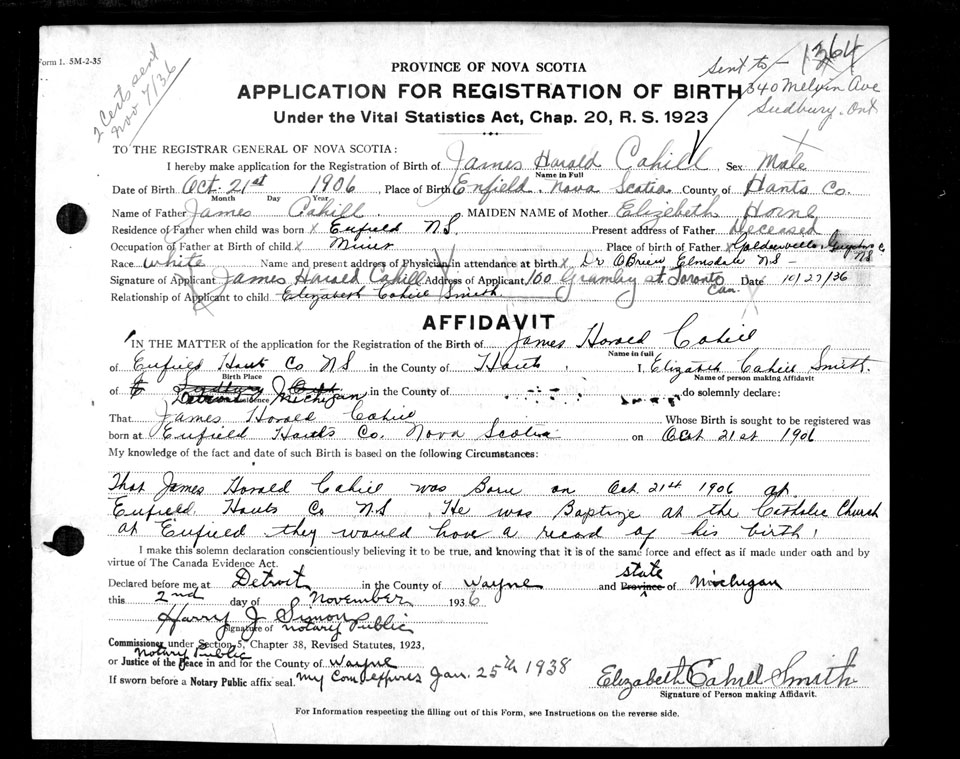 Form 1. 5M-2-35
2 Certs sent
Nov 7/36
PROVINCE OF NOVA SCOTIA
Sent to - 1364
340 Melvin Ave
Sudbury. Ont
APPLICATION FOR REGISTRATION OF BIRTH
Under the Vital Statistics Act, Chap. 20, R. S. 1923
TO THE REGISTRAR GENERAL OF NOVA SCOTIA:
I hereby make application for the Registration of Birth of James Harald Cahill Sex Male
Name in Full
Date of Birth Oct. 21st 1906 Place of Birth Enfield. Nova Scotia County of Hants Co.
Month Day Year
Name of Father James Cahill MAIDEN NAME of Mother Elizebeth Horne
Residence of Father when child was born x Enfield N.S. Present address of Father deceased
Occupation of Father at Birth of child x Miner Place of birth of Father x N.S
Race white Name and present address of Physician in attendance at birth x Dr OBrien Elmsdale N.S -
Signature of Applicant James Harald Cahill Address of Applicant 100 Gramby st. Toronto Can. Date 10/27/36
Relationship of Applicant to child Elizabeth Cahill Smith.
AFFIDAVIT
IN THE MATTER of the application for the Registration of the Birth of James Horald Cahill
Name in full
of Enfield Hants Co N.S in the County of Hants. I, Elizabeth Cahill Smith.
Birth Place Name of person making Affidavit
of Detroit Michigan in the County of do solemnly declare:
Residence
That James Horald Cahill Whose Birth is sought to be registered was
born at Enfield Hants Co. Nova Scotia on Oct 21st 1906
My knowledge of the fact and date of such Birth is based on the following Circumstances:
That James Horald Cahill was Born on Oct. 21st 1906 at.
Enfield. Hants Co N.S. He was Baptize at the Catholic Church
at Enfield they would have a record of his birth.
I make this solemn declaration conscientiously believing it to be true, and knowing that it is of the same force and effect as if made under oath and by
virtue of The Canada Evidence Act.
Declared before me at Detroit in the County of Wayne and state Province of Michigan
this 2nd day of November 1936
Harry J. Simons
Signature of Notary Public
Commissioner under Section 5, Chapter 38, Revised Statutes, 1923,
Notary Public
or Justice of the Peace in and for the County of Wayne
If sworn before a Notary Public affix seal. My Com expires Jan. 25th 1938
Elizabeth Cahill Smith
Signature of Person making Affidavit.
For Information respecting the filling out of this Form, see Instructions on the reverse side.